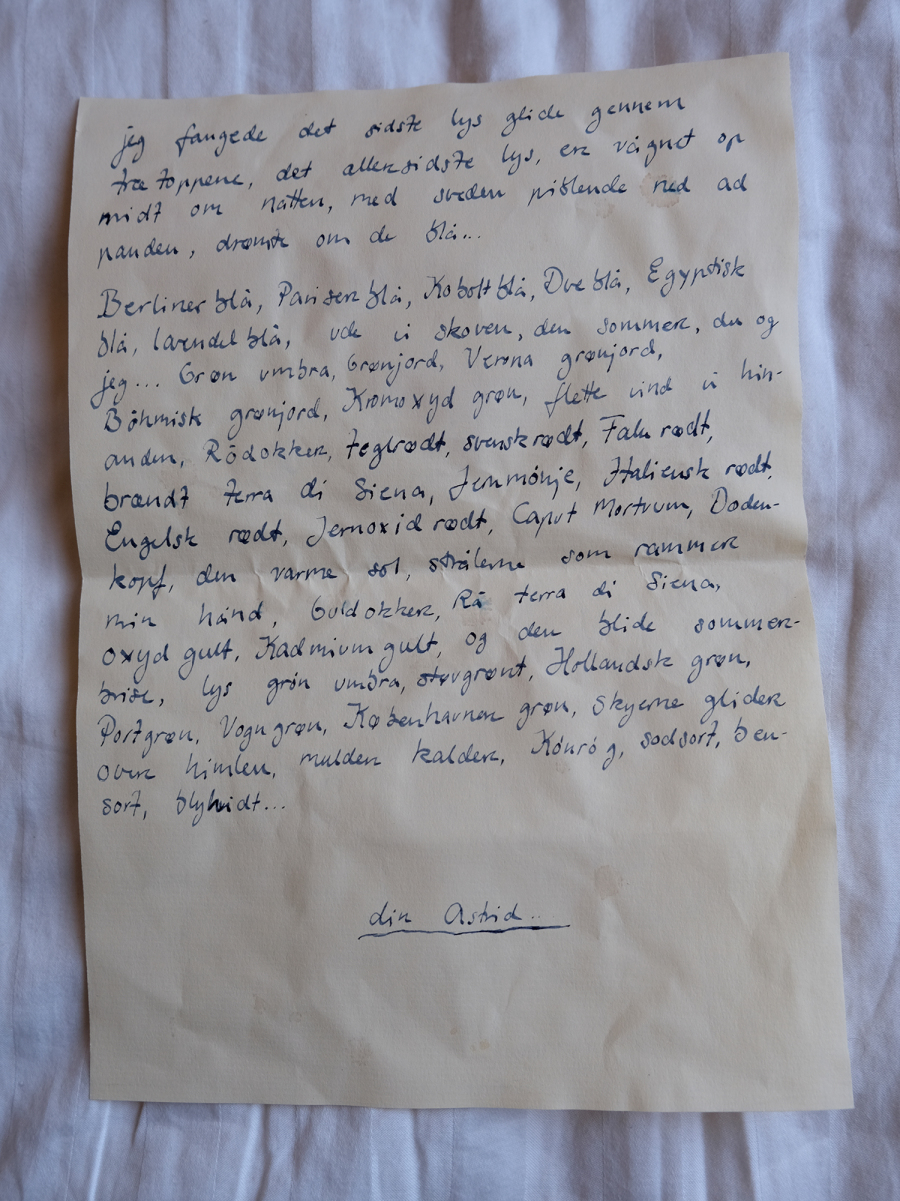 jeg fangede det sidste lys glide gennem
trætoppene, det allersidste lys, er vågnet op
midt om natten, med sveden piblende ned ad
panden, drømte om de blå...
Berlinerblå, Pariserblå, Koboltblå, Dueblå, Egyptisk
blå, lavendelblå, ude i skoven, den sommer, du og
jeg... Grøn umbra, Grønjord, Verona grønjord,
Böhmisk grønjord, Kromoxyd grøn, flette ind i hin-
anden, Rödokker, teglrødt, svenskrødt, Falu rødt,
brændt terra di Siena, Jernmönje, Italiensk rødt,
Engelsk rødt, Jernoxid rødt, Caput Mortuum, Doden-
kopf, den varme sol, strålerne som rammer
min hånd, Guldokker, Rå terra di Siena,
oxyd gult, Kadmium gult, og den blide sommer-
brise, lys grön umbra, støvgrønt, Hollandsk grøn,
Portgrøn, Vogngrøn, Københavner grøn, skyerne glider
over himlen, mulden kalder, Könrög, sodsort, ben-
sort, blyhvidt...
din Astrid..